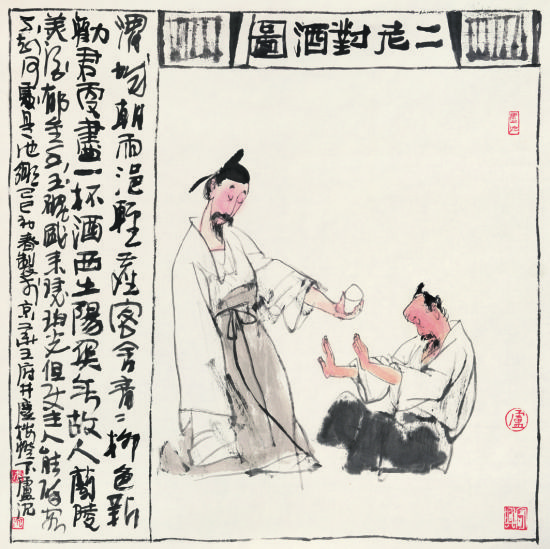 二老對酒圖
渭城朝雨浥輕塵客舍青〻柳色新
勸君更盡一杯酒西出陽關無故人蘭陵
美酒郁金香玉碗盛来琥珀光但使主人能醉客
不知何處是他鄉己巳初春製於京華王府井畫樓燈下盧沉
盧